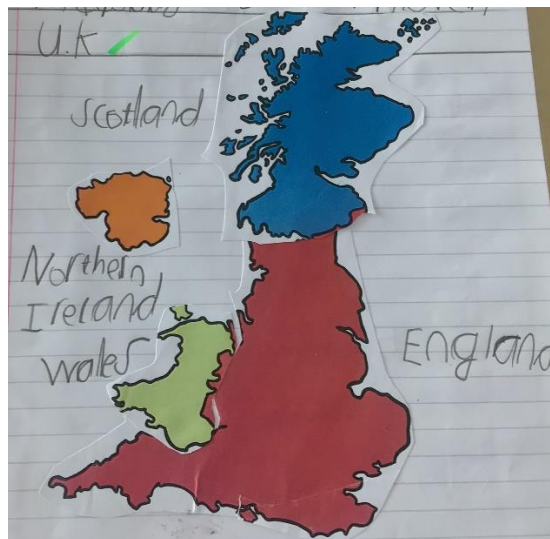 U.K
Scotland
Northern
Ireland
Wales
England